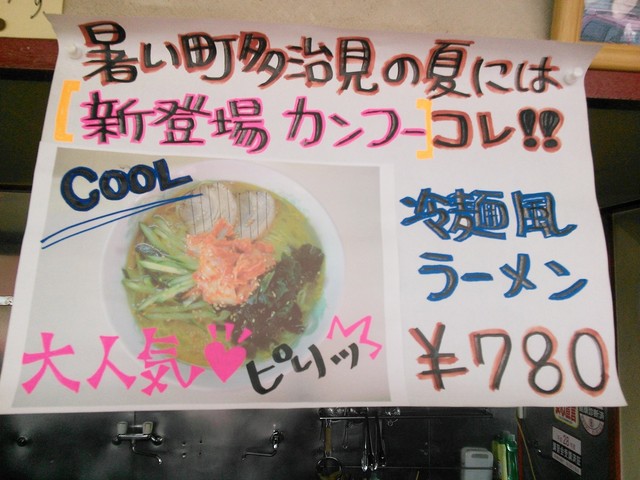 暑い町多治見の夏には
[新登場 カンフー]コレ!!
COOL
冷麺風
ラーメン
大人気♥ピリッ
¥780